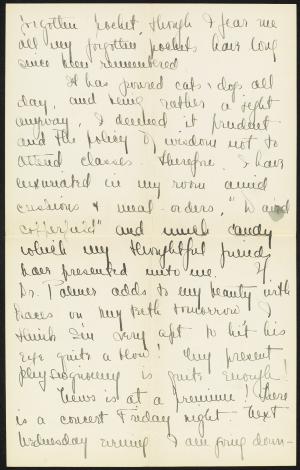 forgotten pocket, though I fear me
all my forgotten pockets have long
since been remembered
It has poured cats & dogs all
day, and being rather a sight
anyway, I deemed it prudent
and the policy of wisdom not to
attend classes. Therefore I have
luxuriated in my room amid
cushions & meal-orders, "David
Copperfield" and much candy
which my thoughtful friends
have presented unto me. If
Dr. Palmer adds to my beauty with
braces on my teeth tomorrow I
think I'm very apt to hit his
eye quite a blow! My present
physiognomy is quite enough!
News is at a premium! There
is a concert Friday night. Next
Wednesday evening I am going down-